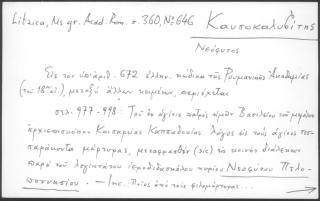 Litzica, Ms gr. Acad. Rom. σ. 360, № 646
Καυσοκαλυβίτης
Νεόφυτος
Εἰς τὸν ὑπ' ἀριθ. 672 ἑλλην. κώδικα τῆς Ρουμανικῆς Ἀκαδημίας
(τοῦ 18ου αἰ.), μεταξὺ ἄλλων κειμένων, περιέχεται
σελ. 977-998: Τοῦ ἐν ἁγίοις πατρὸς ἡμῶν Βασιλείου τοῦ μεγάλου
ἀρχιεπισκόπου Καισαρίας Καππαδοκίας λόγος εἰς τοὺς ἁγίους τεσ-
σαράκοντα μάρτυρας, μεταφρασθὲν (sic) εἰς κοινὴν διάλεκτον
παρὰ τοῦ λογιωτάτου ἱεροδιδασκάλου κυρίου Νεοφύτου Πελο-
ποννησίου. - Inc. Ποῖος ἀπὸ τοὺς φιλομάρτυρας...